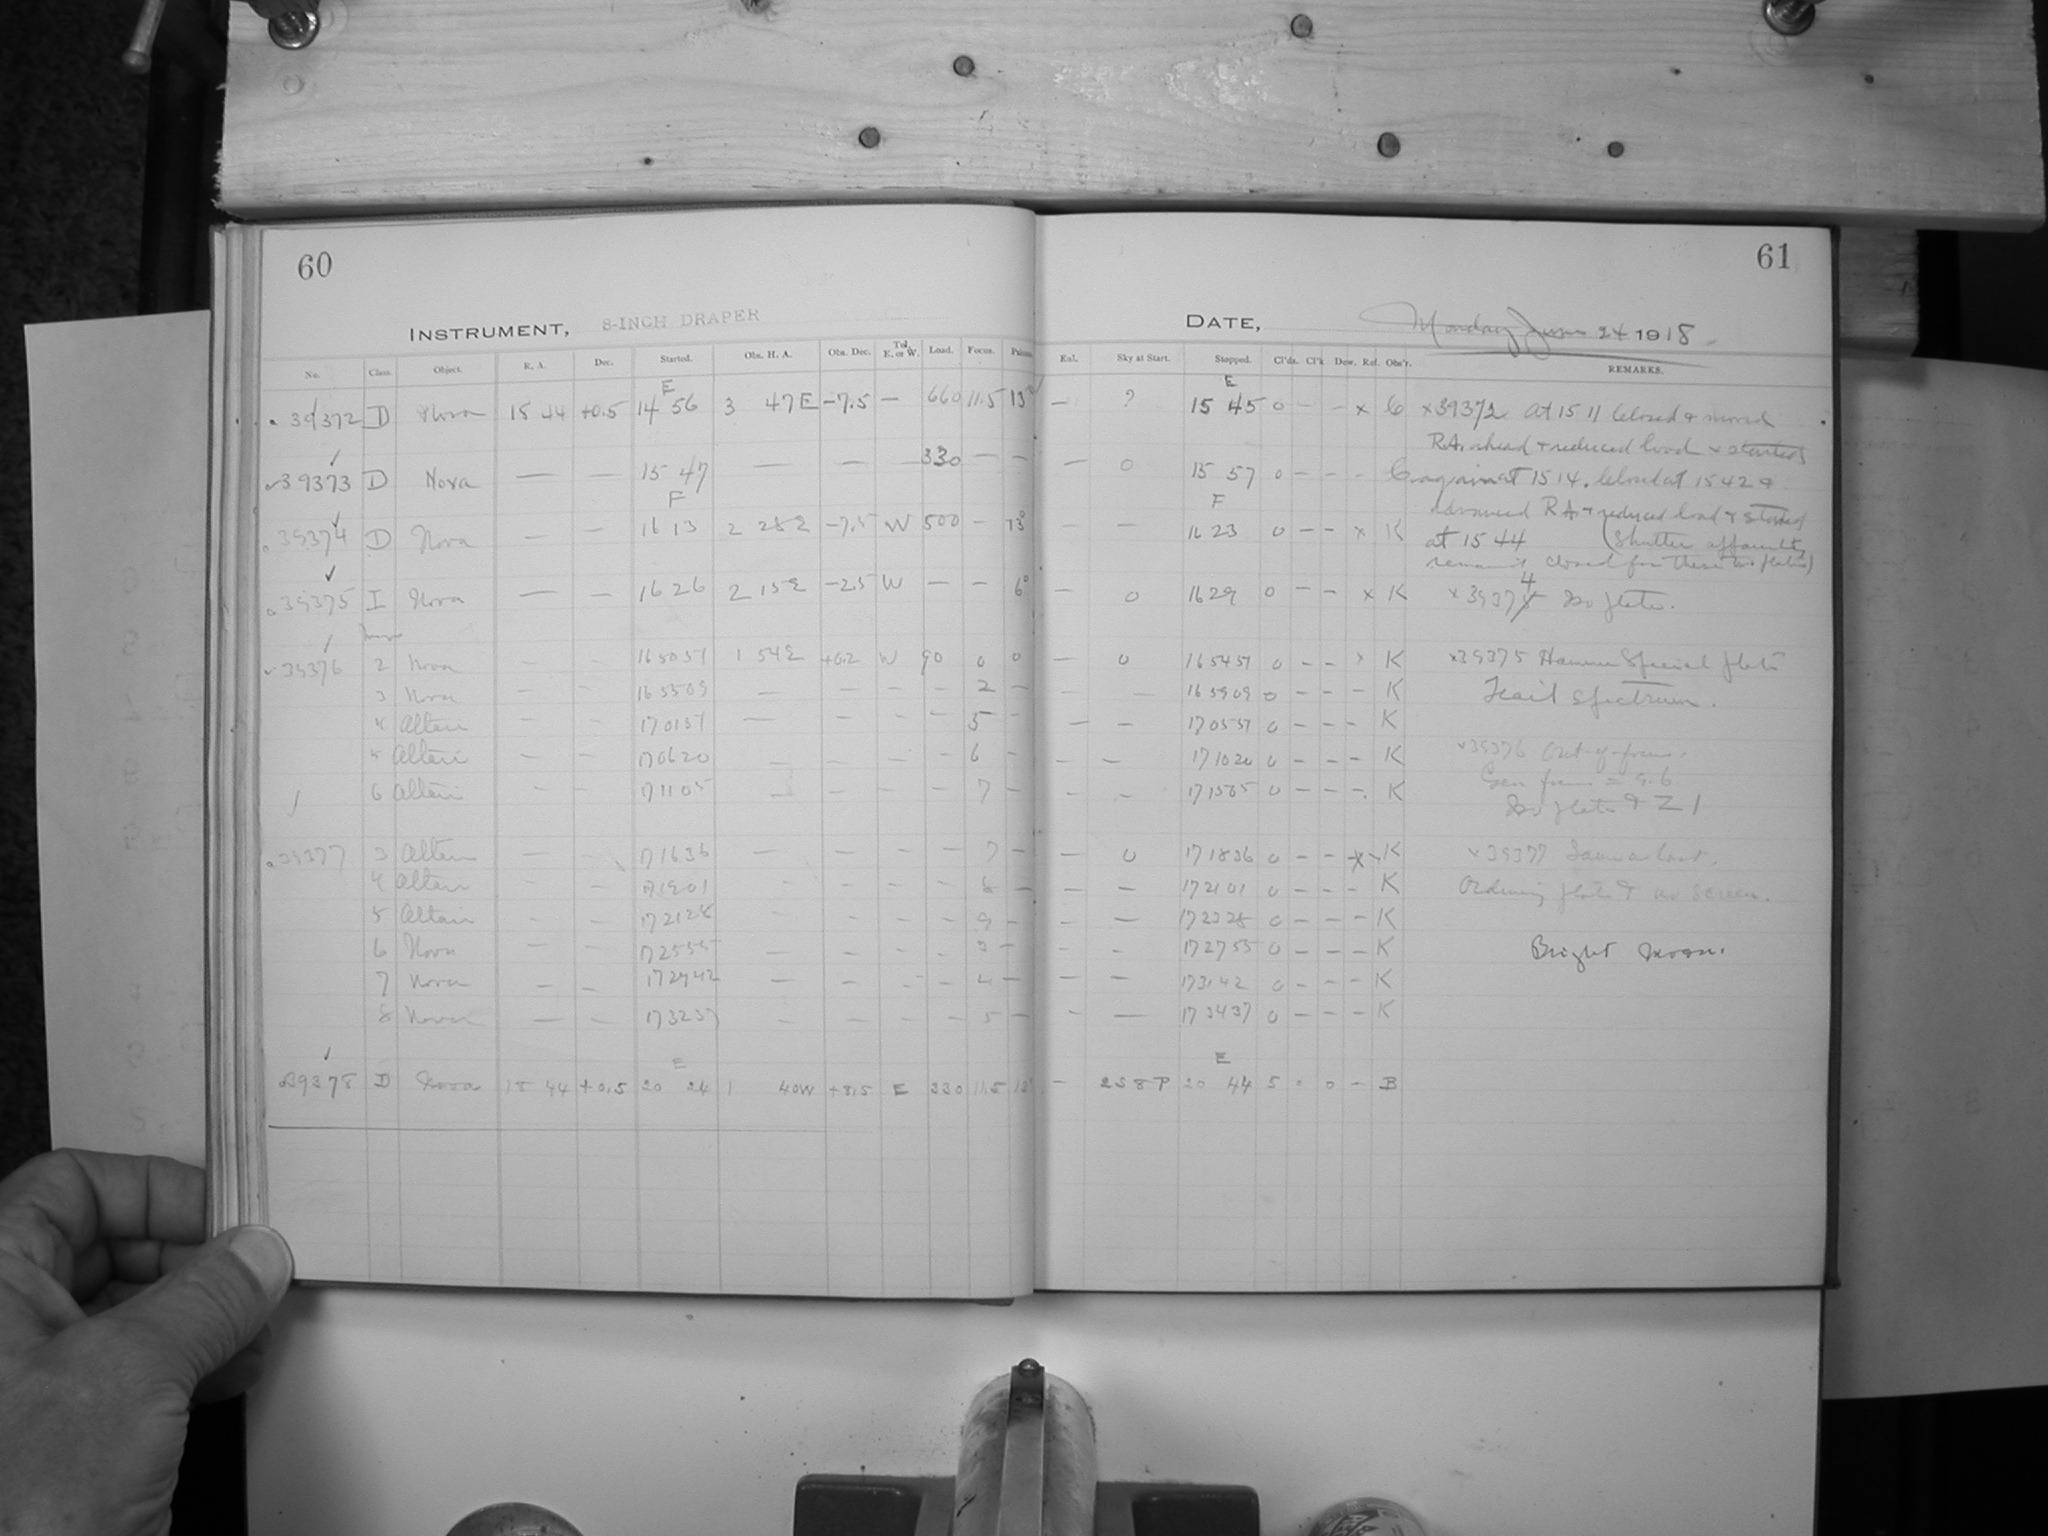 60
61
INSTRUMENT, 8-INCH DRAPER
DATE, Monday June 24 1918
No. Class. Object. R. A. Dec. Started. Obs. H. A. Obs. Dec. Tel. E. or W. Load. Focus. Rul. Sky at Start. Stopped. Cl'ds. Cl'k Dew. Ref. Obs'r. REMARKS.
E E
39372 D Nova 15 44 +0.5 14 56 3 47 E -7.5 — 660 11.5 13 — ? 15 45 0 - - x C x39372 at 15 11 closed & moved
RA ahead & reduced load & started
39373 D Nova — — 15 47 — — 330 — — — 0 15 57 0 - - - C again at 15 14. Closed at 15 42 &
F F advanced RA & reduced load & started
39374 D Nova — — 16 13 2 28 E -7.5 W 500 — 13° — — 16 23 0 - - x K at 15 44 (Shutter apparently
remained closed for these two plates)
39375 I Nova — — 16 26 2 15 E -2.5 W — — 6° — 0 16 29 0 - - x K x39374 Iso plate.
39376 2 Nova - - 16 50 57 1 54 E +0.2 W 90 0 0 — 0 16 54 57 0 - - x K x39375 Hammer Special plate
3 Nova - - 16 55 09 — — - - 2 - - — 16 59 09 0 - - - K Trail spectrum.
4 Altair - - 17 01 57 — — - - 5 - — — 17 05 57 0 - - - K
5 Altair — — 17 06 20 — — - - 6 - - — 17 10 20 0 - - - K x39376 Out-of-focus.
6 Altair - - 17 11 05 — - - - 7 - - - 17 15 05 0 - - - K Gen focus = 9.6
Iso plate & Z 1
39377 3 Altair — - 17 16 36 — — - - 7 - — 0 17 18 36 0 - - x K x39377 Same as last.
4 Altair - - 17 19 01 - - - - 8 — — — 17 21 01 0 - - - K Ordinary plate & no screen.
5 Altair - - 17 21 28 - - - - 9 - - — 17 23 28 0 - - - K
6 Nova - - 17 25 55 — - - - 3 - - - 17 27 55 0 - - - K Bright moon.
7 Nova — - 17 29 42 — — - - 4 — — — 17 31 42 0 - - - K
8 Nova — — 17 32 37 - — - - 5 - - — 17 34 37 0 - - - K
E E
39378 D Nova 18 44 +0.5 20 24 1 40 W +8.5 E 330 11.5 — 258 P 20 44 5 0 0 - B